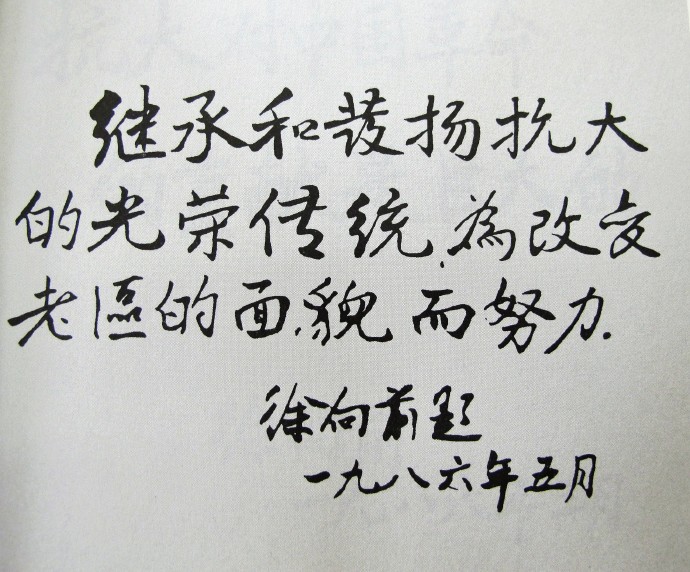 继承和發扬抗大
的光荣传统,為改变
老區的面貌而努力.
徐向前題
一九八六年五月